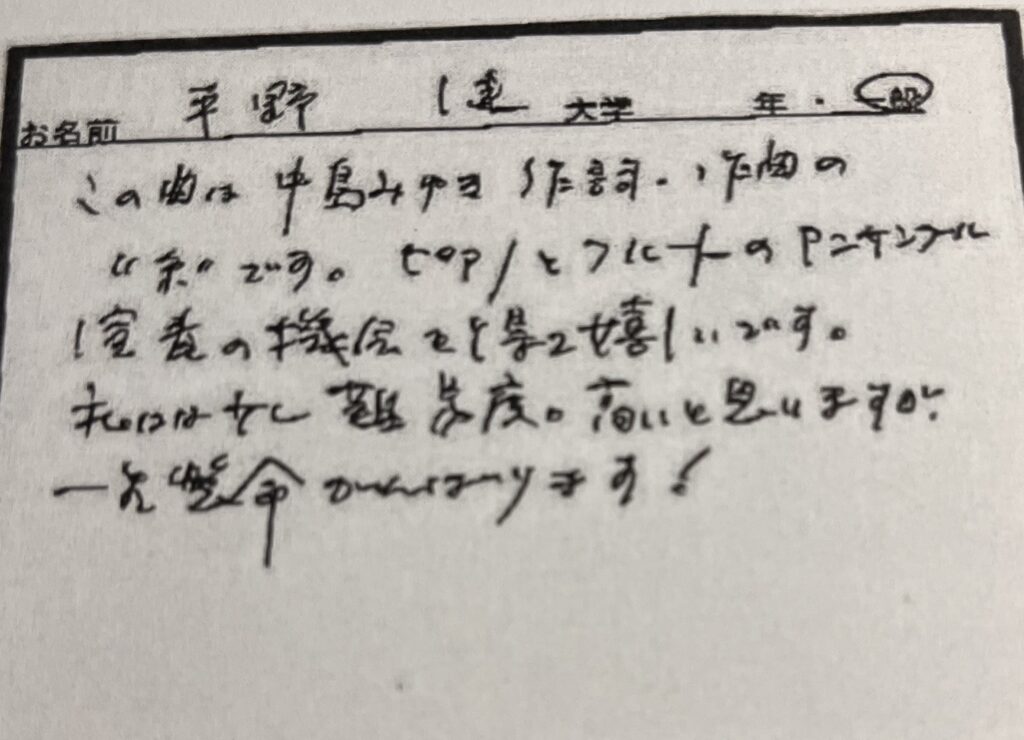 お名前 平野 健 大学 年・一般
この曲は中島みゆき作詩・作曲の
"糸"です。ピアノとフルートのアンサンブル
演奏の機会を得て嬉しいです。
私には少し難易度。高いと思いますが
一生懸命がんばります!